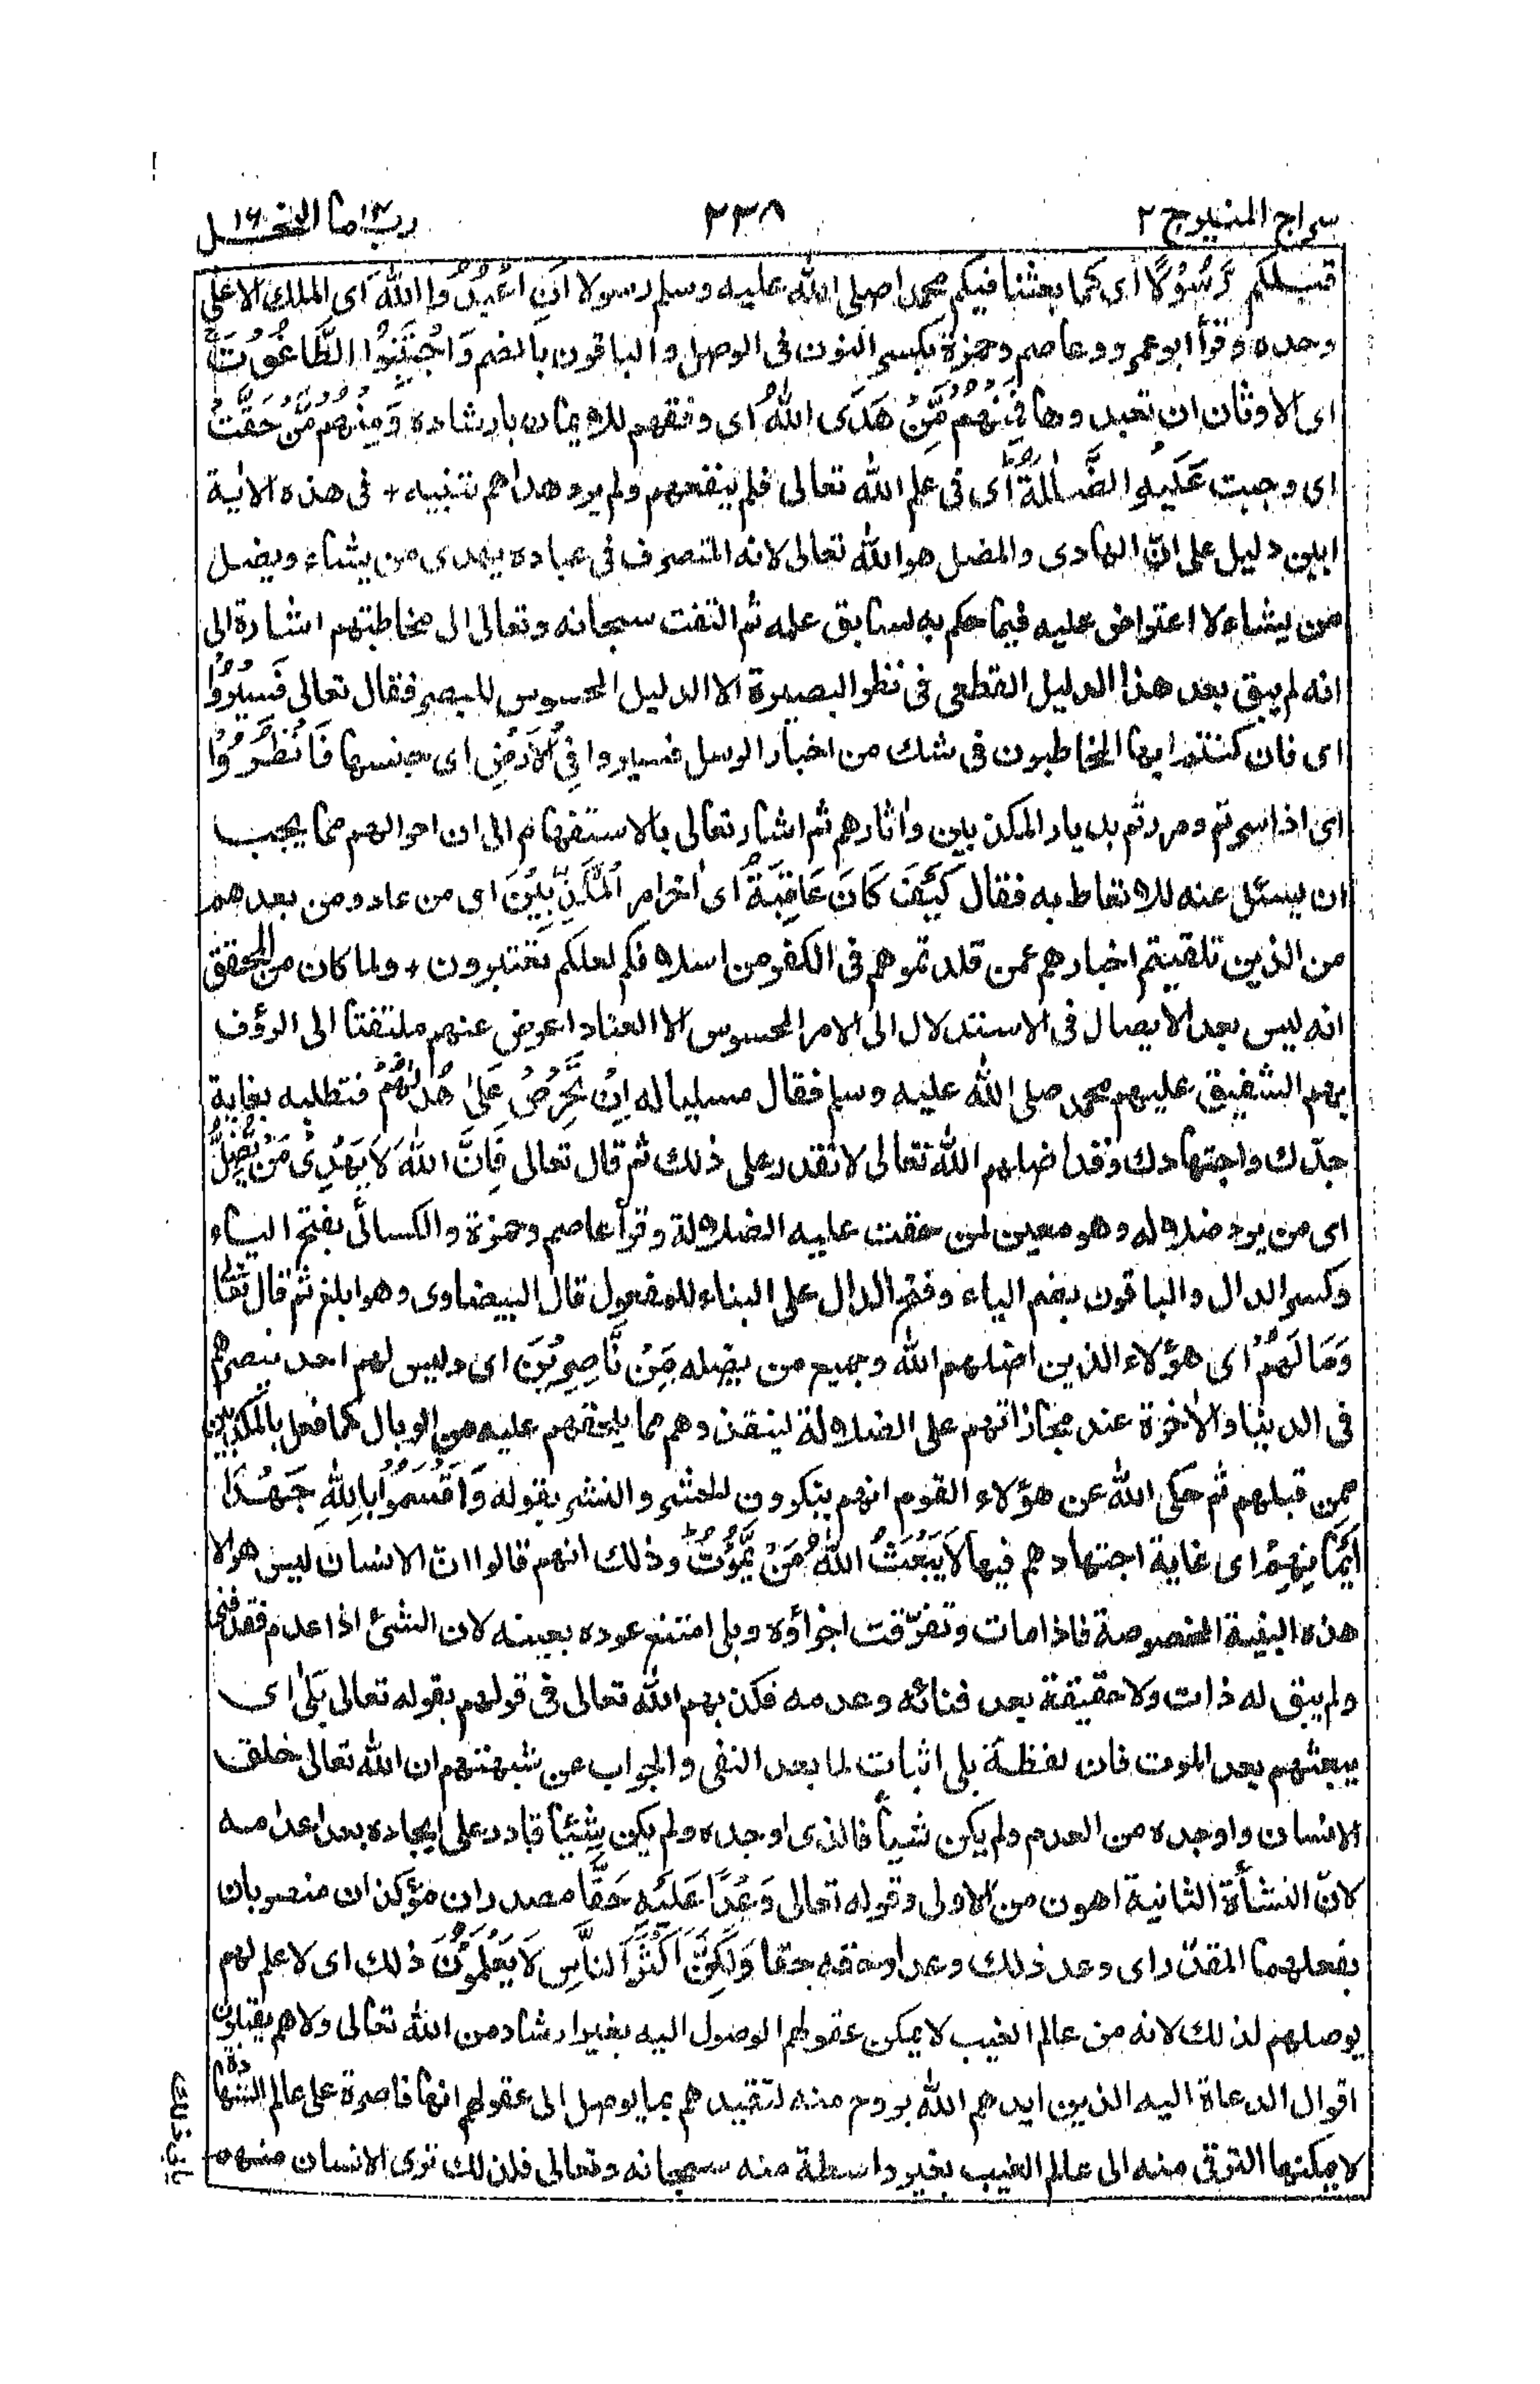 سراج المنير ج ٢ ٢٣٨ ربما ١٤ النحل ١٦
قبلكم رَّسُوْلًا اى كما بعثنا فيكم محمدا صلى الله عليه وسلم رسولا اَنِ اعْبُدُوا اللهَ اى الملك الاعلى
وحده وقرأ ابو عمرو وعاصم وحمزة بكسر النون فى الوصل والباقون بالضم وَاجْتَنِبُوا الطَّاغُوْتَ
اى الاوثان ان تعبدوها فَمِنْهُمْ مَّنْ هَدَى اللهُ اى وفقهم للايمان بارشاده وَمِنْهُمْ مَّنْ حَقَّتْ
اى وجبت عَلَيْهِ الضَّلٰلَةُ اى فى علم الله تعالى فلم ينفعهم ولم يرد هداهم تنبيه + فى هذه الاٰية
ابين دليل على انّ الهادى والمضل هو الله تعالى لانه المتصرف فى عباده يهدى من يشاء ويضل
من يشاء لا اعتراض عليه فيما حكم به لسابق علمه ثم التفت سبحانه وتعالى الى مخاطبتهم اشارة الى
انه لم يبق بعد هذا الدليل القطعى فى نظر البصيرة الا الدليل المحسوس للبصر فقال تعالى فَسِيْرُوْا
اى فان كنتم ايها المخاطبون فى شك من اخبار الرسل فسيروا فِى الْاَرْضِ اى جنسها فَانْظُرُوْا
اى اذا سرتم ومررتم بديار المكذبين واٰثارهم ثم اشار تعالى بالاستفهام الى ان احوالهم مما يجب
ان يسئل عنه للاتعاظ به فقال كَيْفَ كَانَ عَاقِبَةُ اى اٰخر امر الْمُكَذِّبِيْنَ اى من عاد ومن بعدهم
من الذين تلقيتم اخبارهم عمن قلدتموهم فى الكفر من اسلافكم لعلكم تعتبرون + ولما كان من المحقق
انه ليس بعد الايصال فى الاستدلال الى الامر المحسوس الا العناد اعرض عنهم ملتفتا الى الرؤف
بهم الشفيق عليهم محمد صلى الله عليه وسلم فقال مسليا له اِنْ تَحْرِصْ عَلٰى هُدٰىهُمْ فتطلبه بغاية
جدّك واجتهادك وقد اضلهم الله تعالى لا تقدر على ذلك ثم قال تعالى فَاِنَّ اللهَ لَا يَهْدِىْ مَنْ يُّضِلُّ
اى من يرد ضلاله وهو معين لمن حقت عليه الضلالة وقرأ عاصم وحمزة والكسائى بفتح الياء
وكسر الدال والباقون بضم الياء وفتح الدال على البناء للمفعول قال البيضاوى وهو ابلغ ثم قال تعالى
وَمَا لَهُمْ اى هؤلاء الذين اضلهم الله وجميع من يضله مِّنْ نَّاصِرِيْنَ اى وليس لهم احد ينصرهم
فى الدنيا والاٰخرة عند مجازاتهم على الضلالة لينقذوهم مما يلحقهم عليه من الوبال كما فعل بالمكذبين
ممن قبلهم ثم حكى الله عن هؤلاء القوم انهم ينكرون للحشر والنشر بقوله وَاَقْسَمُوْا بِاللهِ جَهْدَ
اَيْمَانِهِمْ اى غاية اجتهادهم فيها لَا يَبْعَثُ اللهُ مَنْ يَّمُوْتُ وذلك انهم قالوا ان الانسان ليس هو الا
هذه البنية المخصوصة فاذا مات وتفرّقت اجزاؤه وبلى امتنع عوده بعينه لان الشئ اذا عدم فقد فنى
ولم يبق له ذات ولا حقيقة بعد فنائه وعدمه فكذبهم الله تعالى فى قولهم بقوله تعالى بَلٰى اى
يبعثهم بعد الموت فان لفظة بلى اثبات لما بعد النفى والجواب عن شبهتهم ان الله تعالى خلق
الانسان واوجده من العدم ولم يكن شيأ فالذى اوجده ولم يكن شيئا قادر على ايجاده بعد اعدامه
لانّ النشأة الثانية اهون من الاولى وقوله تعالى وَعْدًا عَلَيْهِ حَقًّا مصدران مؤكدان منصوبان
بفعلهما المقدّر اى وعد ذلك وعدا وحقه حقا وَلٰكِنَّ اَكْثَرَ النَّاسِ لَا يَعْلَمُوْنَ ذلك اى لا علم لهم
يوصلهم لذلك لانه من عالم الغيب لا يمكن عقولهم الوصول اليه بغير ارشاد من الله تعالى ولا هم يقبلون
اقوال الدعاة اليه الذين ايدهم الله بروح منه لتقيدهم بما يوصل الى عقولهم انها قاصرة على عالم الشهادة
لا يمكنها الترقى منه الى عالم الغيب بغير واسطة منه سبحانه وتعالى فلذلك ترى الانسان منهم